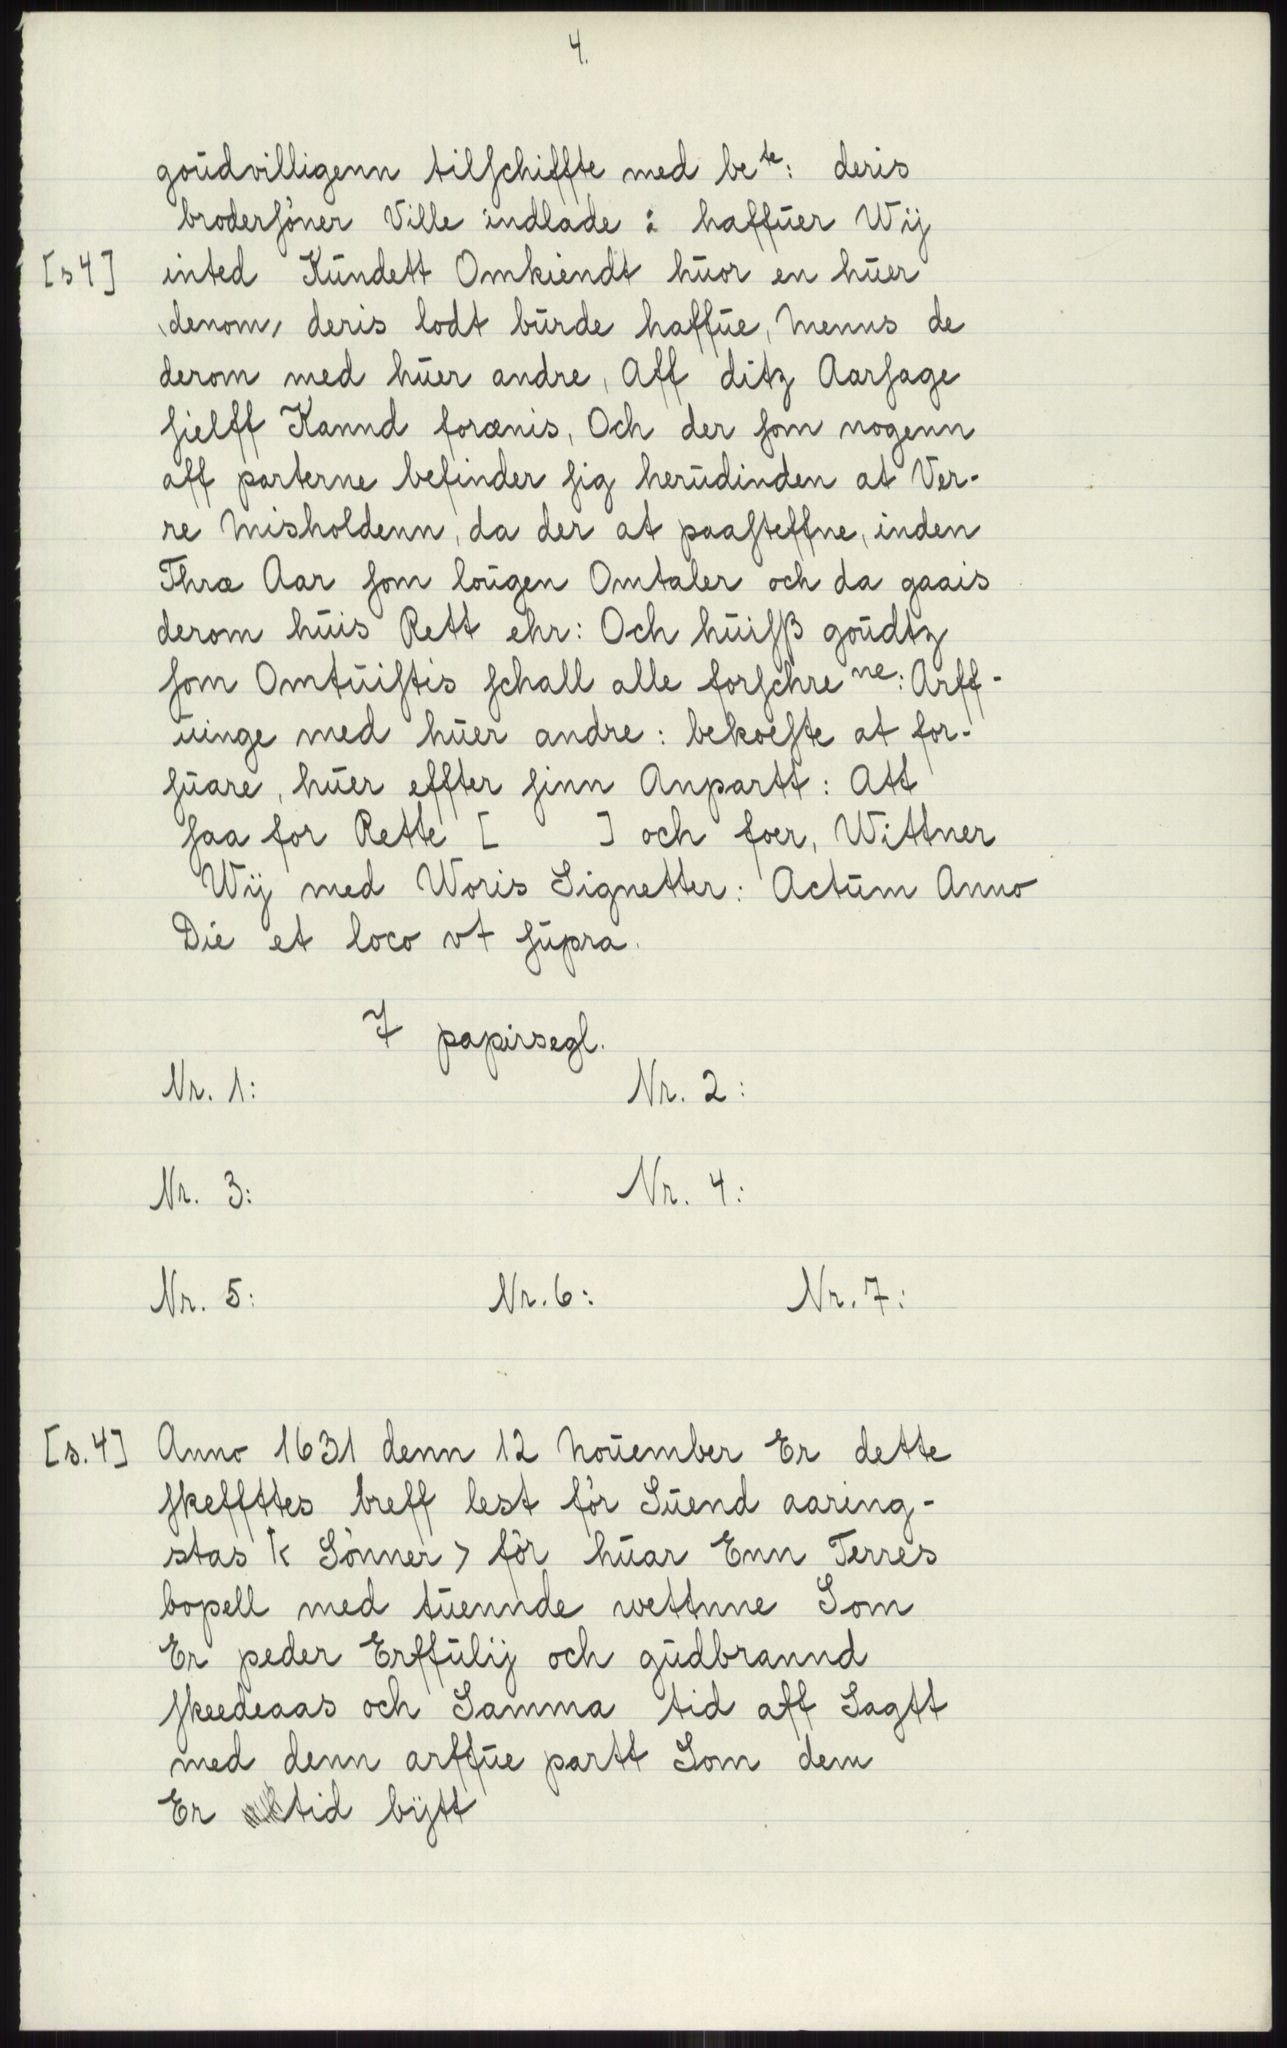 4.
goudvilligenn tilschiffte med be te: deris
brodersöner Ville indlade : haffuer Wij
[s4] inted Kundett Omkiendt huor en huer
denom, deris lodt burde haffue, Menns de
derom med huer andre, Aff ditz Aarsage
sielff Kannd forænis, Och der som nogenn
aff parterne befinder sig herudinden at Ver-
re Misholdenn, da der at paasteffne, inden
Thræ Aar som lougen Omtaler och da gaais
derom huis Rett ehr: Och huisß goudtz
som Omtuistis schall alle forschre ne: Arff-
uinge med huer andre: bekoeste at for-
suare, huer effter sinn Anpartt: Att
saa for Rette [ ] och foer, Wittner
Wij med Woris Signetter: Actum Anno
Die et loco vt supra.
7 papirsegl.
Nr. 1: Nr. 2:
Nr. 3: Nr. 4:
Nr. 5: Nr. 6: Nr. 7:
[s. 4] Anno 1631 denn 12 Nouember Er dette
skeffttes breff lest för Suend aaring-
stas k Sönner > för huar Enn Terres
bopell med tuennde wettnne Som
Er peder Erffulij och gudbrannd
skeedeaas och Samma tid aff Sagtt
med denn arffue partt Som dem
Er tid bÿtt